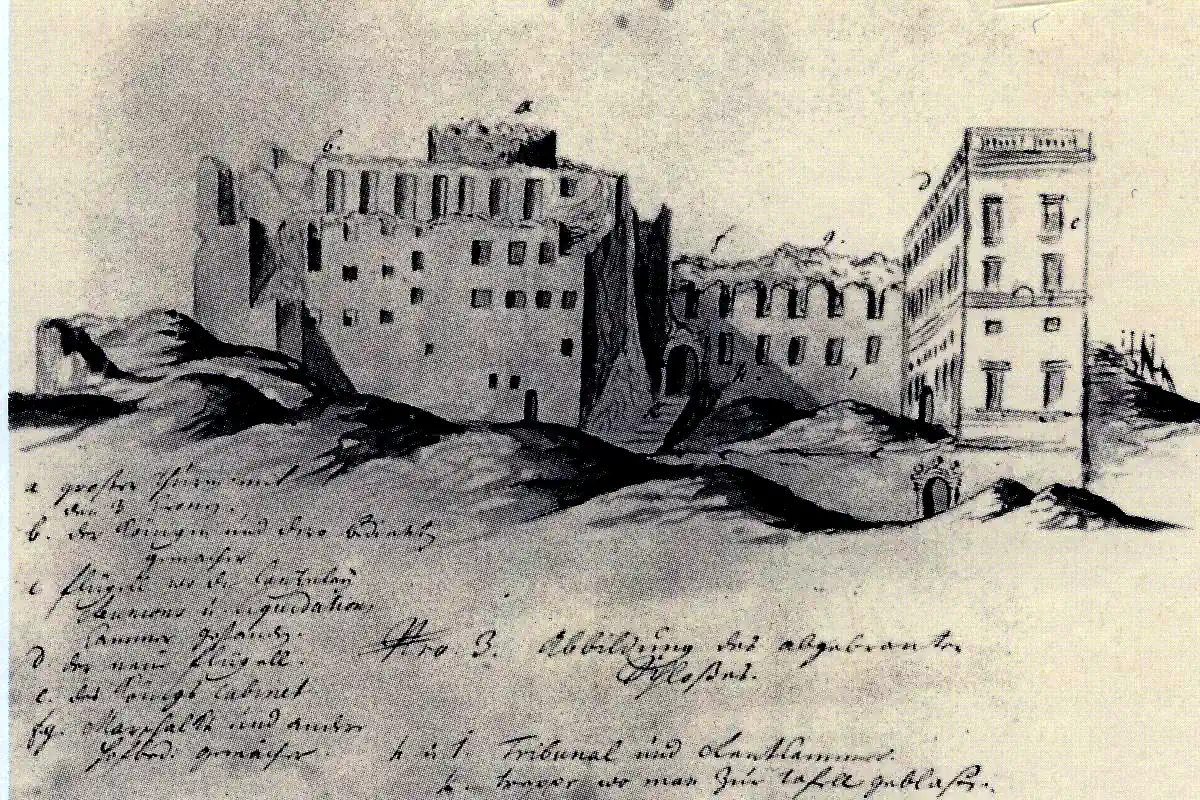 a
b.
D
e
f
g.
h
a großer Thurm mit
den 3 Cronen.
b. der Königin und dero Bedienten
gemächer
c flügell wo die Cantzeley
und Liquidations
Cammer gestanden.
D der neue flügell.
e. des Königs Cabinet
fg. Marschalls und andere
Hofbed. gemächer
Nro. 3. Abbildung des abgebranten
Schloßes.
h u i. Tribunal und
k. wo man zur tafell geblaßen.